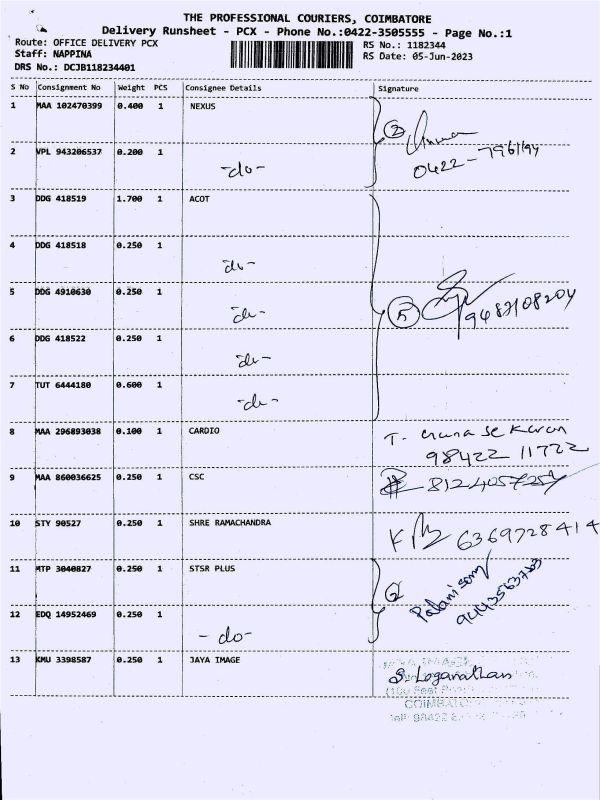 THE PROFESSIONAL COURIERS, COIMBATORE
Delivery Runsheet - PCX - Phone No.:0422-3505555 - Page No.:1
Route: OFFICE DELIVERY PCX RS No.: 1182344
Staff: NAPPINA RS Date: 05-Jun-2023
DRS No.: DCJB118234401
S No Consignment No Weight PCS Consignee Details Signature
1 MAA 102470399 0.400 1 NEXUS
2
2 VPL 943206537 0.200 1 -do- 0422-7961194
3 DDG 418519 1.700 1 ACOT
4 DDG 418518 0.250 1 -do-
5 DDG 4910630 0.250 1 -do- 5
6 DDG 418522 0.250 1 -do-
7 TUT 6444180 0.600 1 -do-
8 MAA 296893038 0.100 1 CARDIO T. Gunasekaran
98422 11722
9 MAA 860036625 0.250 1 CSC 8124057254
10 STY 90527 0.250 1 SHRE RAMACHANDRA 6369728414
11 MTP 3040827 0.250 1 STSR PLUS 2 Palanisamy
12 EDQ 14952469 0.250 1 -do-
13 KMU 3398587 0.250 1 JAYA IMAGE S. Loganathan
COIMBATORE